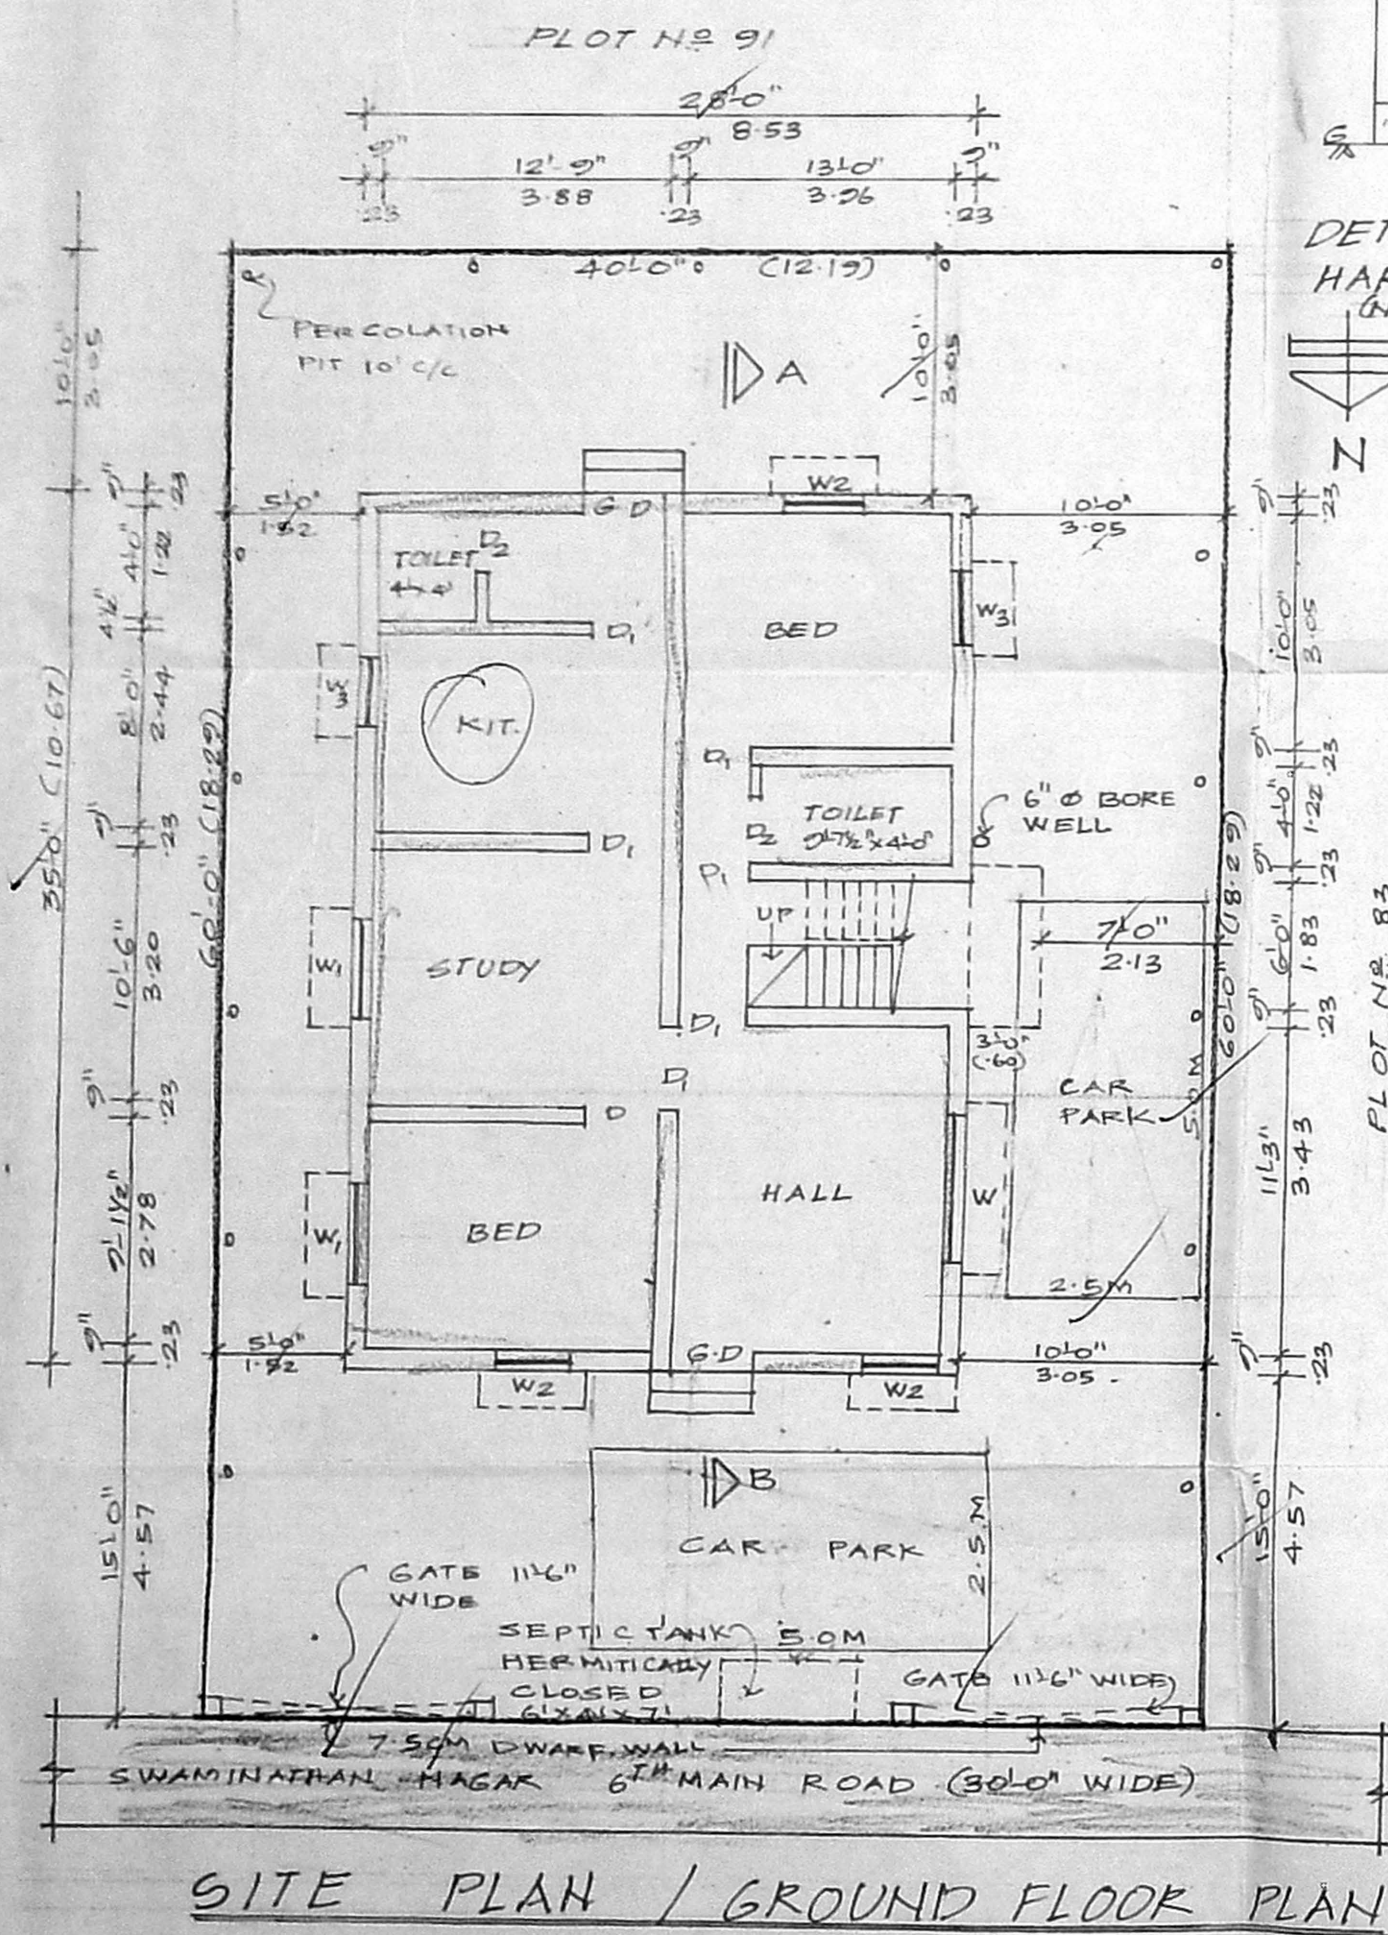 PLOT Nº 91
28'-0"
8.53
9" 12'-9" 9" 13'-0" 9"
.23 3.88 .23 3.96 .23
40'-0" (12.19)
PERCOLATION
PIT 10' C/C
A
10'-0"
3.05
10'-0"
3.05
DET
HAR
N
5'-0"
1.52
G.D
W2
10'-0"
3.05
TOILET D2
4'x4'
D1
BED
W3
W3
KIT.
D1
TOILET
D2 9'-7½"x4'-0"
6" Ø BORE
WELL
D1
D1
UP
7'-0"
2.13
W1
STUDY
D1
3'-0"
(.60)
D1
D
CAR
PARK
5.0M
W1
BED
HALL
W
2.5M
5'-0"
1.52
G.D
10'-0"
3.05
W2
W2
B
CAR PARK
2.5.M
5.0M
GATE 11'-6"
WIDE
SEPTIC TANK
HERMITICALLY
CLOSED
6'x4'x7'
GATE 11'-6" WIDE
7.5CM DWARF WALL
SWAMINATHAN NAGAR 6TH MAIN ROAD (30'-0" WIDE)
35'-0" (10.67)
60'-0" (18.29)
9" .23
4'-0" 1.22
4½"
8'-0" 2.44
9" .23
10'-6" 3.20
9" .23
9'-1½" 2.78
9" .23
15'-0" 4.57
60'-0" (18.29)
9" .23
10'-0" 3.05
9" .23
4'-0" 1.22
9" .23
6'-0" 1.83
9" .23
11'-3" 3.43
9" .23
15'-0" 4.57
PLOT Nº 83
SITE PLAN / GROUND FLOOR PLAN